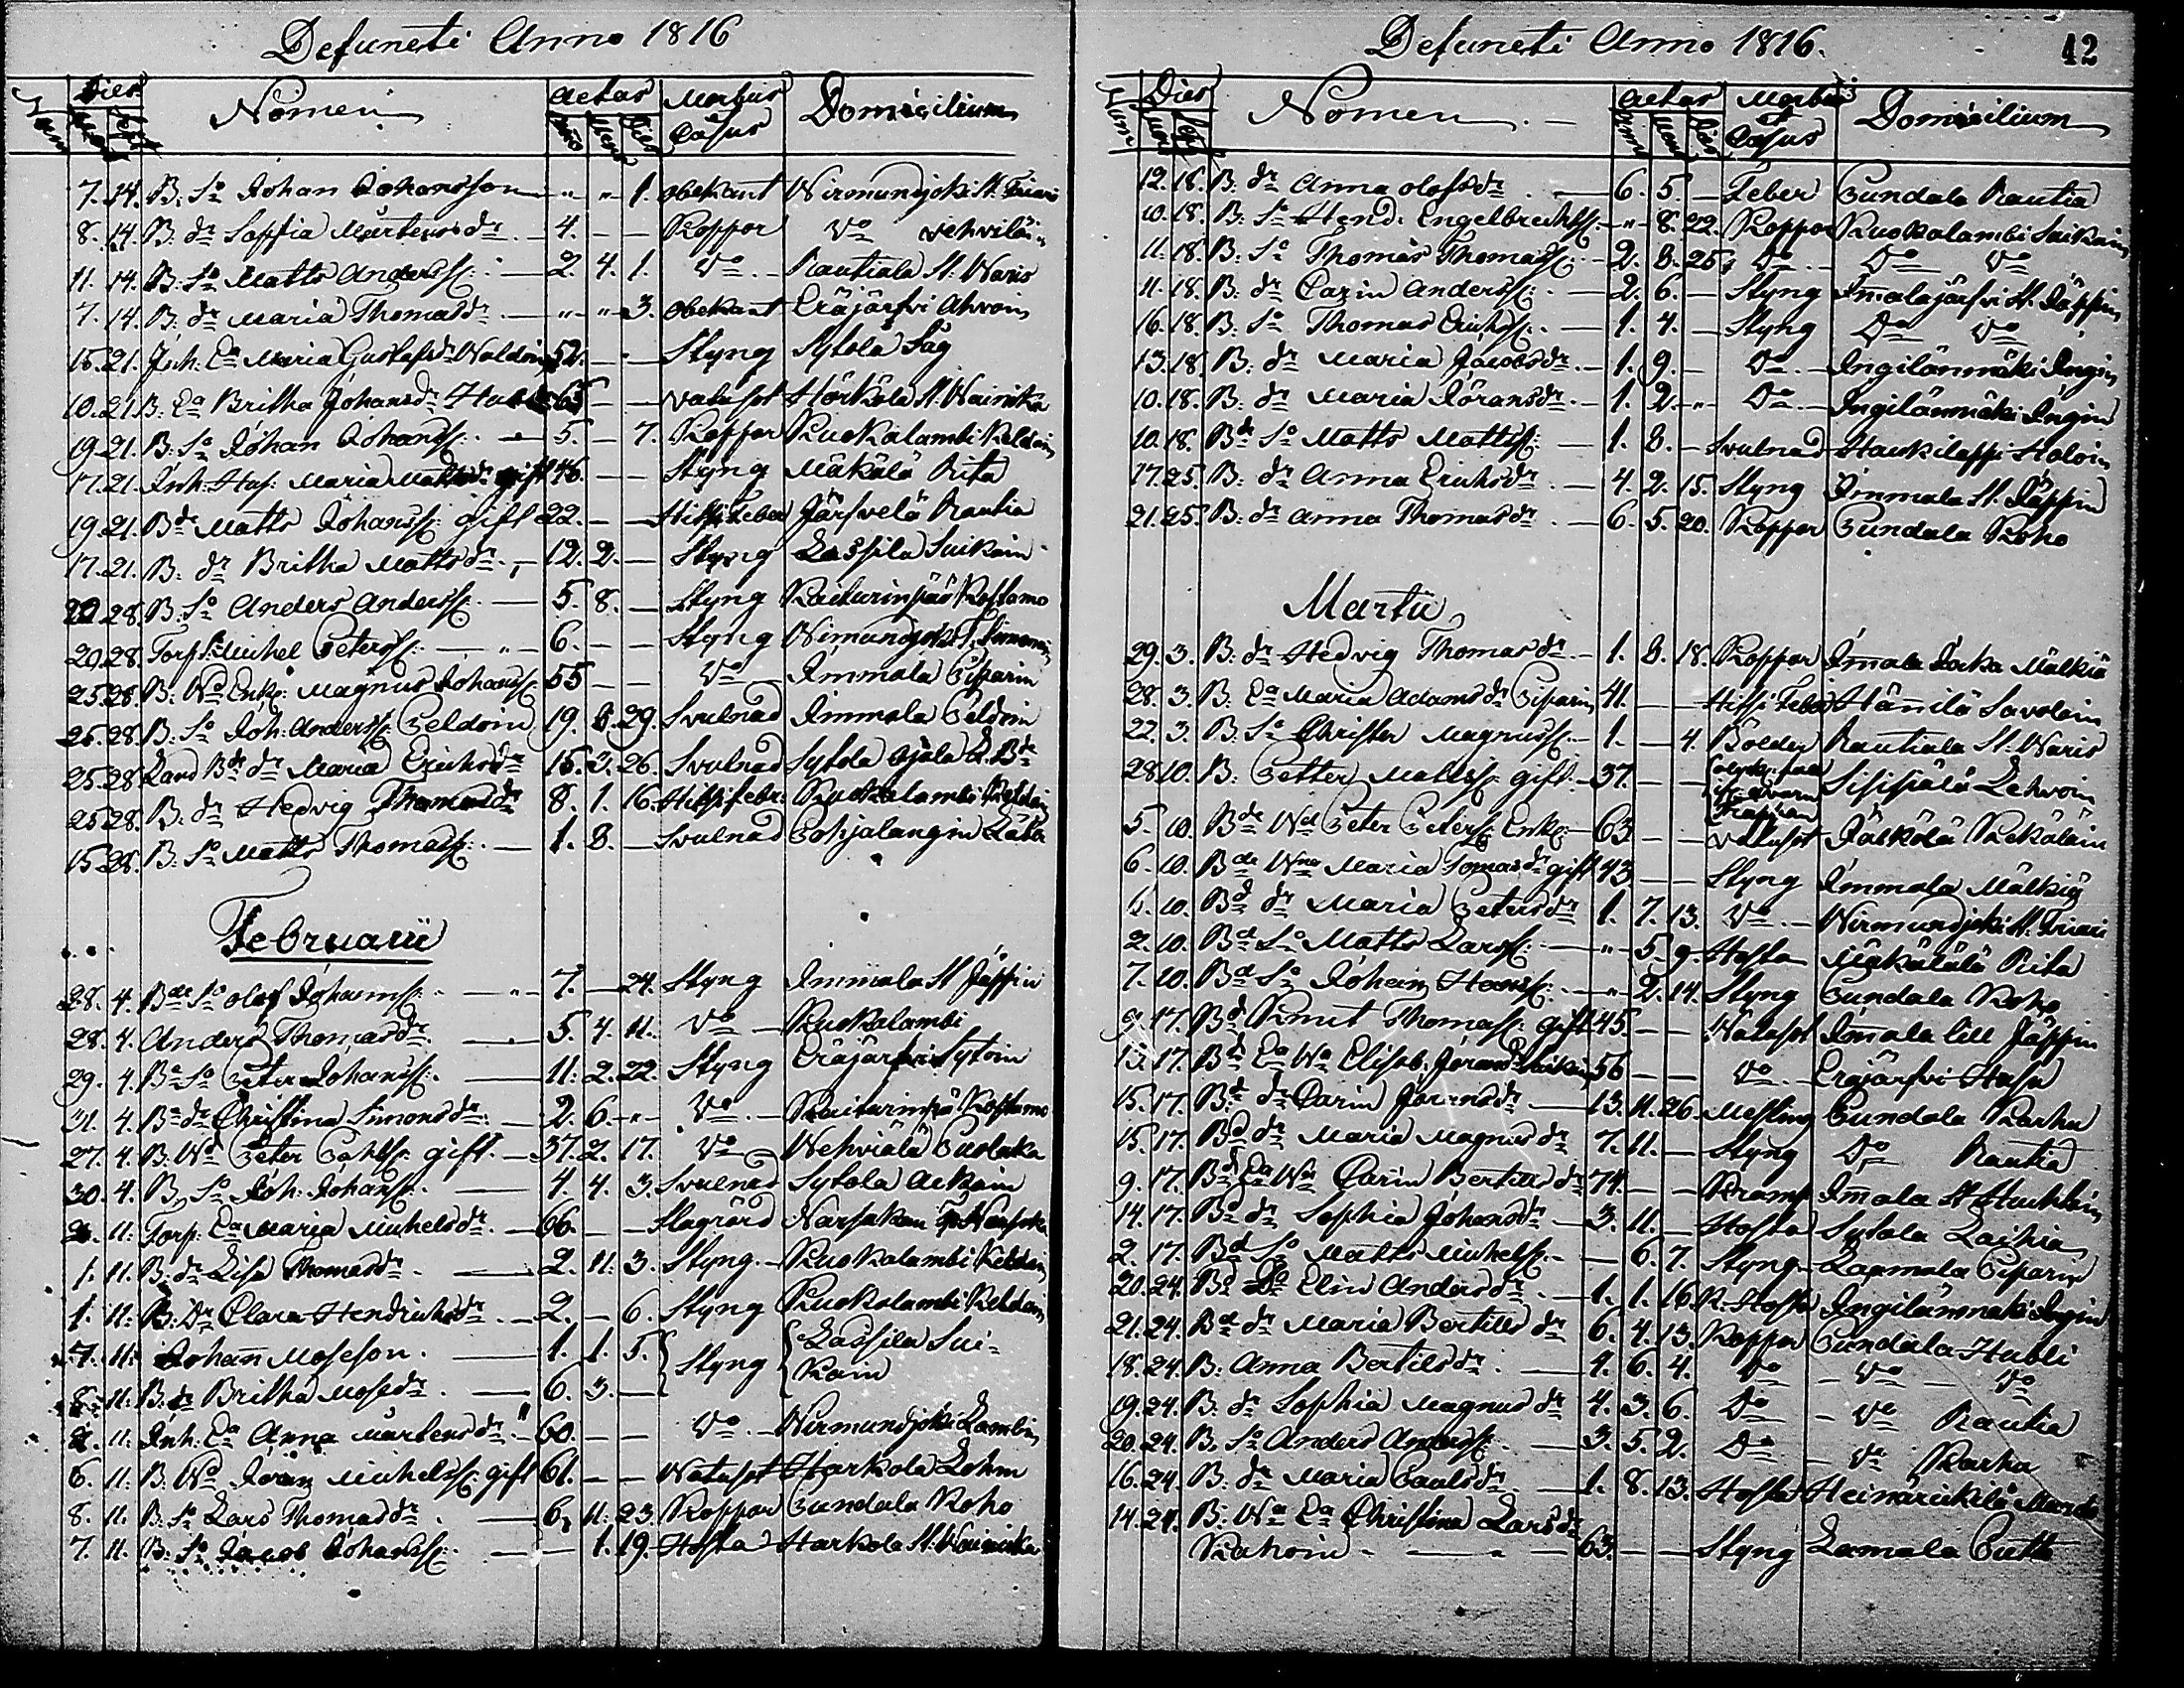 Defuncti Anno 1816
Dies Nomen aetas Morbus Casus Domicilium
7. 14. B. So Johan Johansson " " 1. obekant Wirmundjoki St. Friari
8. 14. B. dr Soffia Mårtensdr 4. — — Koppor Do Wehviläi
11. 14. B. So Matts Anderss: 2. 4. 1. Do Rautiala St. Waris
7. 14. B. dr Maria Thomasdr " " 3. obekant Eräjärfvi Ahvoin
15. 21. Inh. Ea Maria Gustafsdr Waldin 52. — — Styng Sytola Såg
10. 21. B. Ea Britha Johansdr 65 — — vatusot Härkölä St. Wainikka
19 21. B. So Johan Johanss: 5. — 7. Koppor Ruokalambi Keldoin
17. 21. Inh. Hus: Maria Mattsdr gift 46. — — Styng Mäkälä Rita
19 21. Bde Matts Johanss: gift 22. — — Hitsi Feber Järfvelä Rautia
17. 21. B. dr Britha Mattsdr 12. 2. — Styng Lassila Suikain
20 28. B. So Anders Anderss: 5. 8. — Styng Raiturinpää Kostamo
20. 28. Torp: So Michel Peterss: 6. — — Styng Wirmundjoki Simonen
25 28. B: Wd Enkl: Magnus Johanss: 55 — — Do Immala Piparin
26. 28. B. So Joh: Anderss: Peldoin 19. 8. 29. Svulnad Immala Peldoin
25 28. Land Bde dr Maria Erichsdr 15. 3. 26. Svulnad Sytola Ojala L. Bde
25 28. B: dr Hedvig Thomasdr 8. 1. 16. Hitsi febr: Ruokalambi Keldoin
15 28. B. So Matts Thomass: 1. 8. — Svulnad Pohjalangin Lätta
Februarii
28. 4. Bde So Olof Johanss: 7. — 24. Styng Immala St Jäppin
28. 4. Anders Thomasdr 5. 4. 11. Do Ruokalambi
29. 4. Bd So Peter Johanss: 11: 2. 22. Styng Eräjärfvi Sytoin
31. 4. Bd dr Christina Simonsdr 2. 6. " Do Raiturinpä Kostamo
27. 4. B. Wd Peter Pahlss: gift 37. 2. 17. Do Wehviälä Puolaka
30. 4. B. So Joh: Johanss: 4 4. 3. Svulnad Sytola Ackain
11: Torp: Ea Maria Michelsdr 66. — — Slagrörd Närsäkkä
1. 11. B. dr Lisa Thomasdr 2. 11. 3. Styng Ruokalambi Keldoin
1. 11: B. Dr Clara Hendrichsdr 2. — 6. Styng Ruokolambi Keldoin
7. 11: Johan Moseson 1. 1. 5. Styng Lassila Sui=
8. 11: B. dr Britha Mosesdr 6. 3. — kain
11. Inh. Ea Anna Mårtensdr 60. — — Do Wirmundjoki Lambin
6. 11. B. Wd Jöran Michelss: gift 61. — — Watusot Härkola Lohm
8. 11. B. So Lars Thomasdr 6. 11. 23. Koppor Pundala Roho
7. 11. B. So Jacob Johanss: — 1. 19. Hosta Härkola St. Wainikka
Defuncti Anno 1816.
42
Dies Nomen aetas Morbus Casus Domicilium
12. 18. B: dr Anna Olofsdr 6. 5. — Feber Pundala Rautia
10. 18. B: So Hend: Engelbrechtss: " 8. 22. Koppor Ruokalambi Suikain
11. 18. B: So Thomas Thomass: 2. 8. 25. Do Do Do
11. 18. B: dr Carin Anderss: 2. 6. — Styng Immalajärfvi St. Jäppin
16. 18. B: So Thomas Erichss: 1. 4. — Styng Do Do
13. 18. B: dr Maria Jacobsdr 1. 9. — Do Ingilänmäki Ingin
10. 18. B: dr Maria Jöransdr 1. 2. " Do Ingilänmäki Ingin
10. 18. Bde So Matts Mattss: 1. 8. — Svulnad Haukilappi Haloin
17. 25. B: dr Anna Erichsdr 4. 2. 15. Styng Immala St. Jäppin
21. 25. B: dr Anna Thomasdr 6. 5. 20. Koppor Pundala Roho
Martii
29. 3. B: dr Hedvig Thomasdr 1. 8. 18. Koppor Imala Jaka Mälkiä
28. 3. B: Ea Maria Adamsdr Piparin 41. — — Hitsi Feber Hännilä Savolain
22. 3. B: So Christer Magnuss: 1. — 4. Bölder Rautiala St. Waris
28 10. B: Petter Mattss: gift 37. — — Sisipälä Lehvoin
5. 10. Bde Wd Peter Peterss: Enkl: 63 — — vatusot Jälkölä Kekäläin
6. 10. Bde Wna Maria Tomasdr gift 43 — — Styng Immala Mälkiä
6. 10. Bd dr Maria Petersdr 1. 7. 13. Do Wirmundjoki St. Friari
2. 10. Bd So Matts Larss: " 5. 9. Hosta Mäkälälä Rita
7. 10. Bd So Johan Hanss: " 2. 14. Styng Pundala Roho
9. 17. Bd Knut Thomass: gift 45. — — Wätusot Imala lill Jäppin
13. 17. Bd Ea Wa Elisab. Jöransdr Suikain 56 — — Do Eräjärfvi Hasa
15. 17. Bd dr Carin Jöransdr 13. 11. 26. Messling Pundala Karhu
15. 17. Bd dr Maria Magnusdr 7. 11. — Styng Do Rautia
9. 17. Bd Ea Wa Carin Bertilsdr 74. — — Kramp Imala St Huuhkain
14. 17. Bd dr Sophia Johansdr 3. 11. — Hosta Sytola Laihia
2. 17. Bd So Matts Michelss: — 6. 7. Styng Lammala Piparin
20. 24. Bd Elin Andersdr 1. 1. 16. K. Hosta Ingilänmäki Ingin
21. 24. Bd dr Maria Bertilsdr 6. 4. 13. Koppor Pundala Hubli
18. 24. B: Anna Bertilsdr 1. 6. 4. Do Do Do
19. 24. B: dr Sophia Magnusdr 4. 3. 6. Do Do Rautia
20. 24. B. So Anders Anderss: 3. 5. 2. Do Do Karhu
16. 24. B: dr Maria Paulsdr 1. 8. 13. Hosta Heinärickilä
14. 24. B: Wa Ea Christina Larsdr
Kakoin 63. — — Styng Lamala Putto